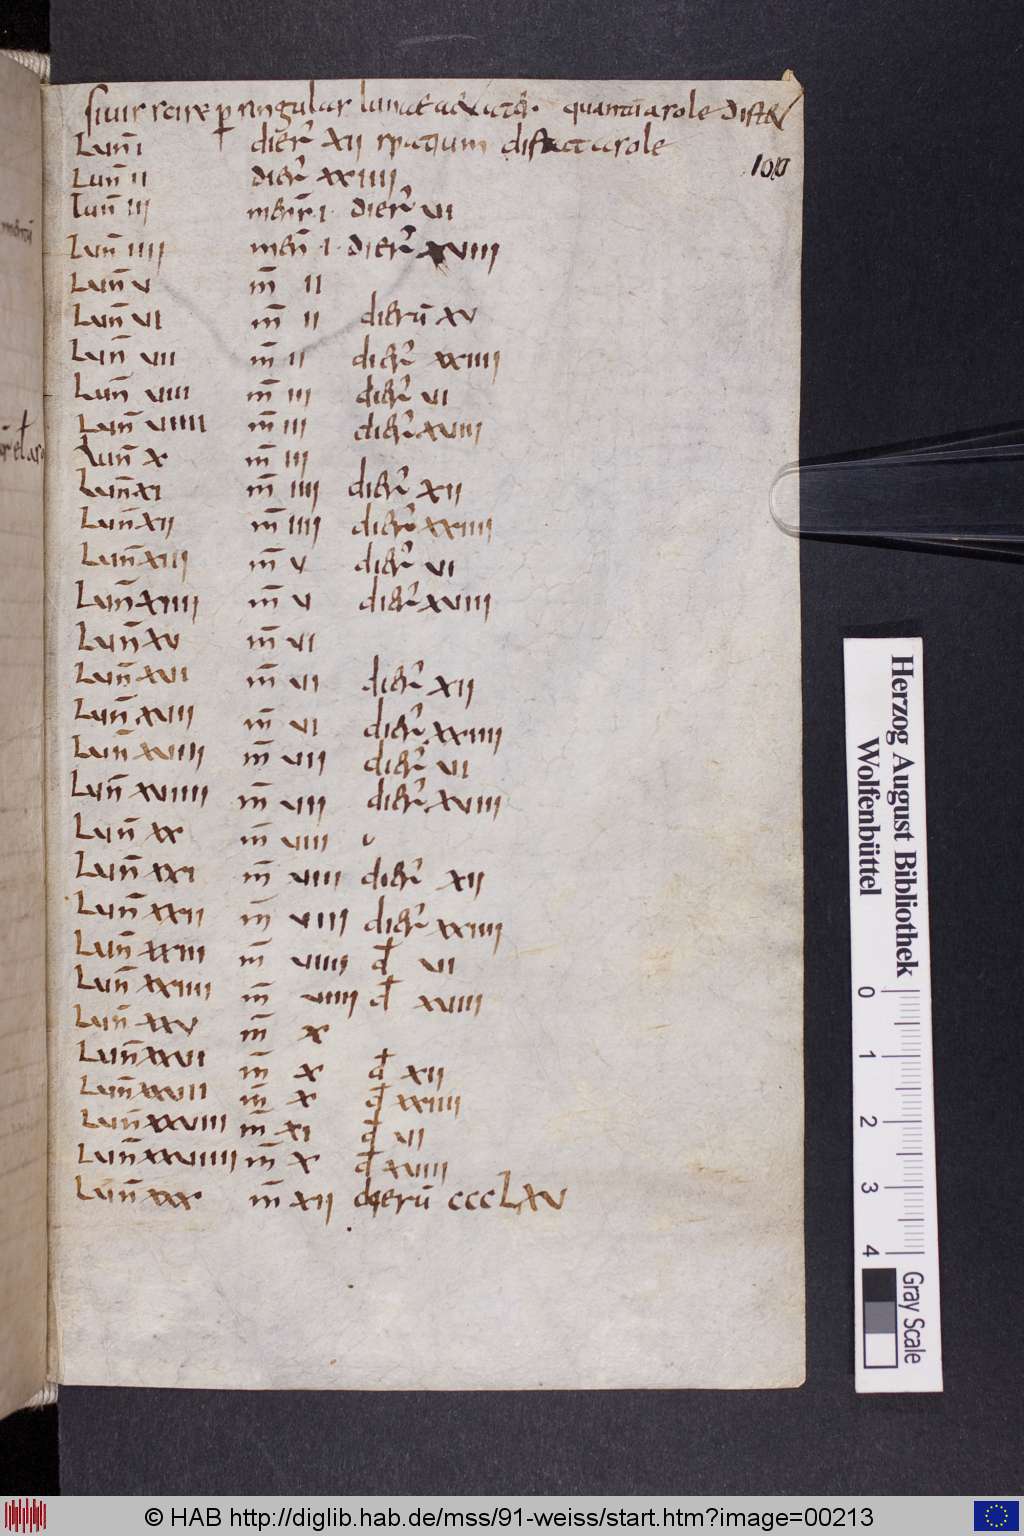 sivis scire p singulas lunae aetates. quantū a sole distet
Luñ i dier̃ xii spatium distat a sole
100
Luñ ii dier̃ xxiiii
Luñ iii mens̃ i. dier̃ vi
Luñ iiii meñ i. dier̃ xviii
Luñ v m̄ ii
Luñ vi m̄ ii dierū xv
Luñ vii m̄ ii dier̃ xxiiii
Luñ viiii m̄ iii dier̃ vi
Luñ viiiii m̄ iii dier̃ xviii
Luñ x m̄ iii
Luñ xi m̄ iiii dier̃ xii
Luñ xii m̄ iiii dier̃ xxiiii
Luñ xiii m̄ v dier̃ vi
Luñ xiiii m̄ v dier̃ xviii
Luñ xv m̄ vi
Luñ xvi m̄ vi dier̃ xii
Luñ xviii m̄ vi dier̃ xxiiii
Luñ xviiii m̄ vii dier̃ vi
Luñ xviiiii m̄ viii dier̃ xviii
Luñ xx m̄ viii
Luñ xxi m̄ viiii dier̃ xii
Luñ xxii m̄ viiii dier̃ xxiiii
Luñ xxiii m̄ viiiii đ vi
Luñ xxiiii m̄ viiiii đ xviiii
Luñ xxv m̄ x
Luñ xxvi m̄ x đ xii
Luñ xxvii m̄ x đ xxiiii
Luñ xxviii m̄ xi đ vii
Luñ xxviiiii m̄ x đ xviiii
Luñ xxx m̄ xii dierū cccLxv
Herzog August Bibliothek
Wolfenbüttel
0 1 2 3 4
Gray Scale
© HAB http://diglib.hab.de/mss/91-weiss/start.htm?image=00213